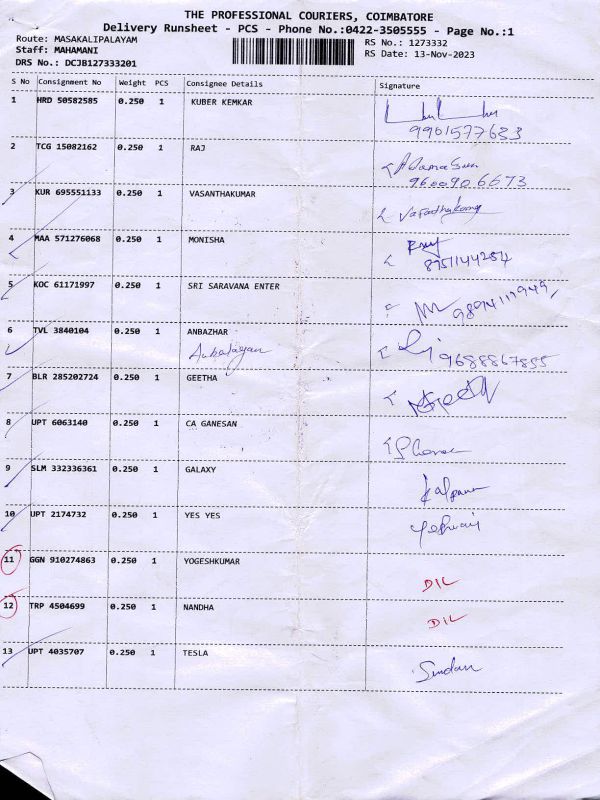 THE PROFESSIONAL COURIERS, COIMBATORE
Delivery Runsheet - PCS - Phone No.:0422-3505555 - Page No.:1
Route: MASAKALIPALAYAM RS No.: 1273332
Staff: MAHAMANI RS Date: 13-Nov-2023
DRS No.: DCJB127333201
S No Consignment No Weight PCS Consignee Details Signature
1 HRD 50582585 0.250 1 KUBER KEMKAR
9901577633
2 TCG 15082162 0.250 1 RAJ
9600906673
3 KUR 695551133 0.250 1 VASANTHAKUMAR
4 MAA 571276068 0.250 1 MONISHA
8951144284
5 KOC 61171997 0.250 1 SRI SARAVANA ENTER
9894117949
6 TVL 3840104 0.250 1 ANBAZHAR
Anbalagan 9688867855
7 BLR 285202724 0.250 1 GEETHA
8 UPT 6063140 0.250 1 CA GANESAN
9 SLM 332336361 0.250 1 GALAXY
Kalpana
10 UPT 2174732 0.250 1 YES YES
11 GGN 910274863 0.250 1 YOGESHKUMAR
DIL
12 TRP 4504699 0.250 1 NANDHA
DIL
13 UPT 4035707 0.250 1 TESLA